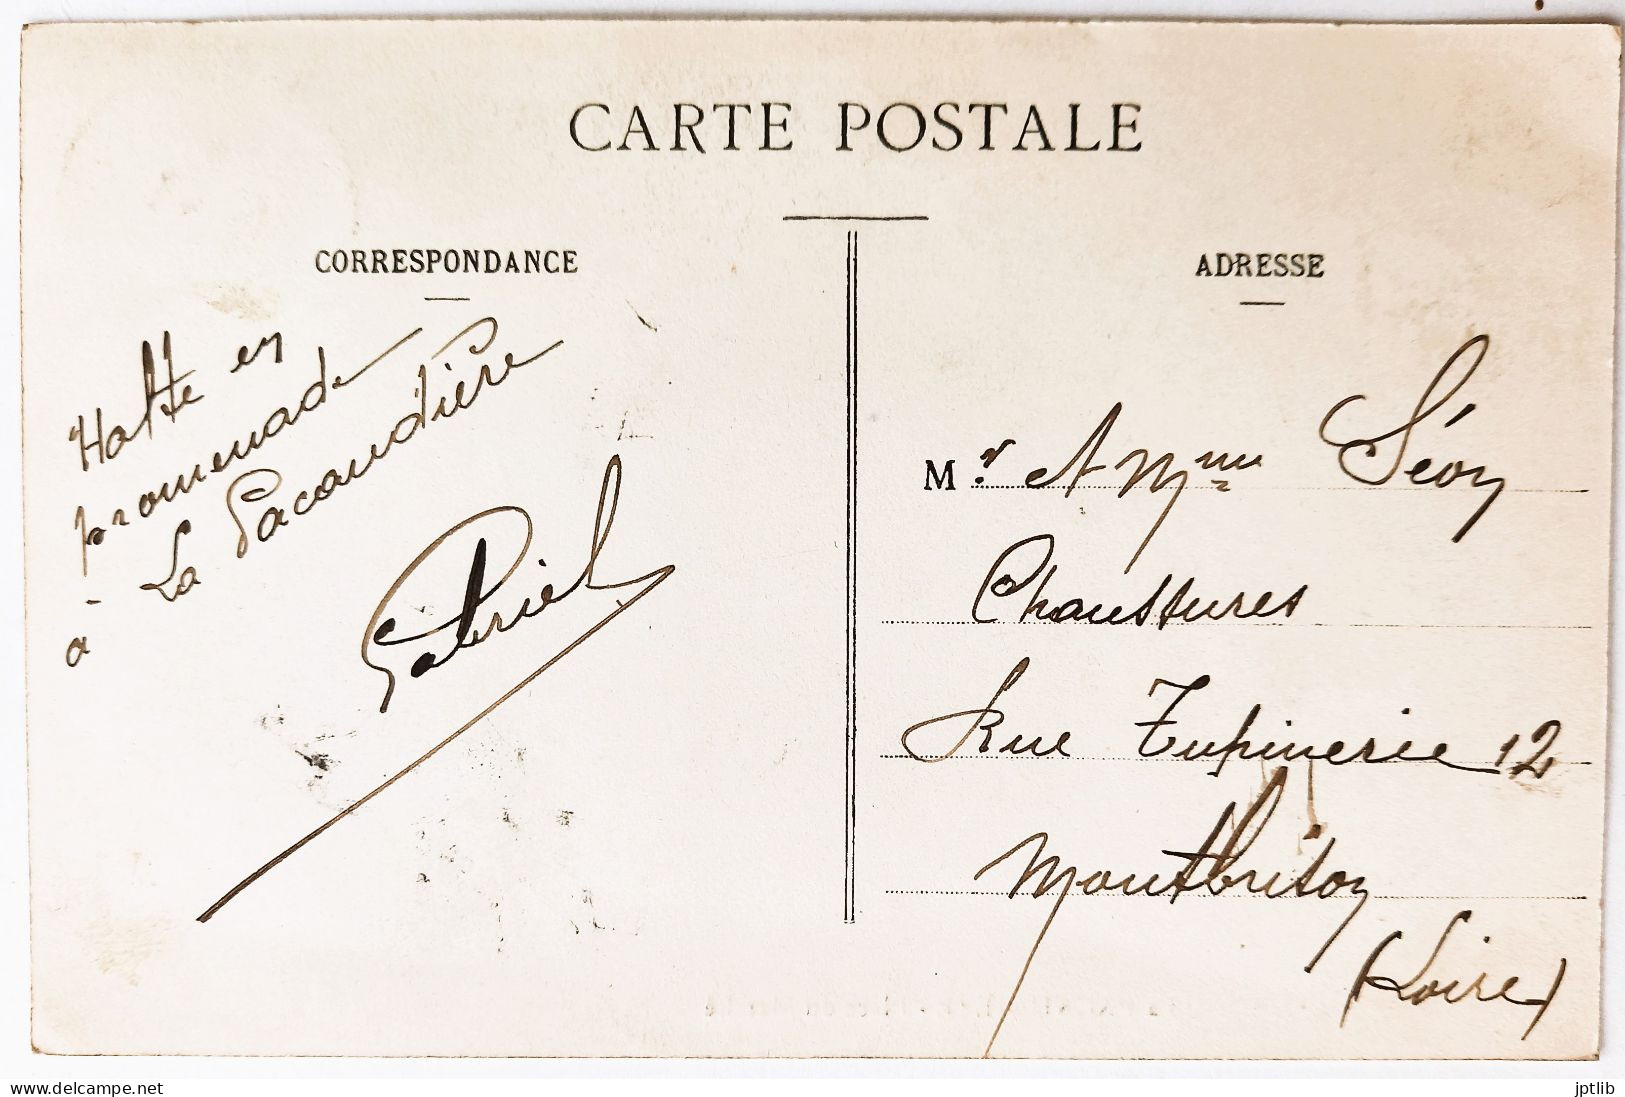 CARTE POSTALE
CORRESPONDANCE
Halte en
promenade
à La Pacaudière
Gabriel
ADRESSE
Mr et Mme Séon
Chaussures
Rue Tupinerie 12
Montbrison
(Loire)
www.delcampe.net
jptlib